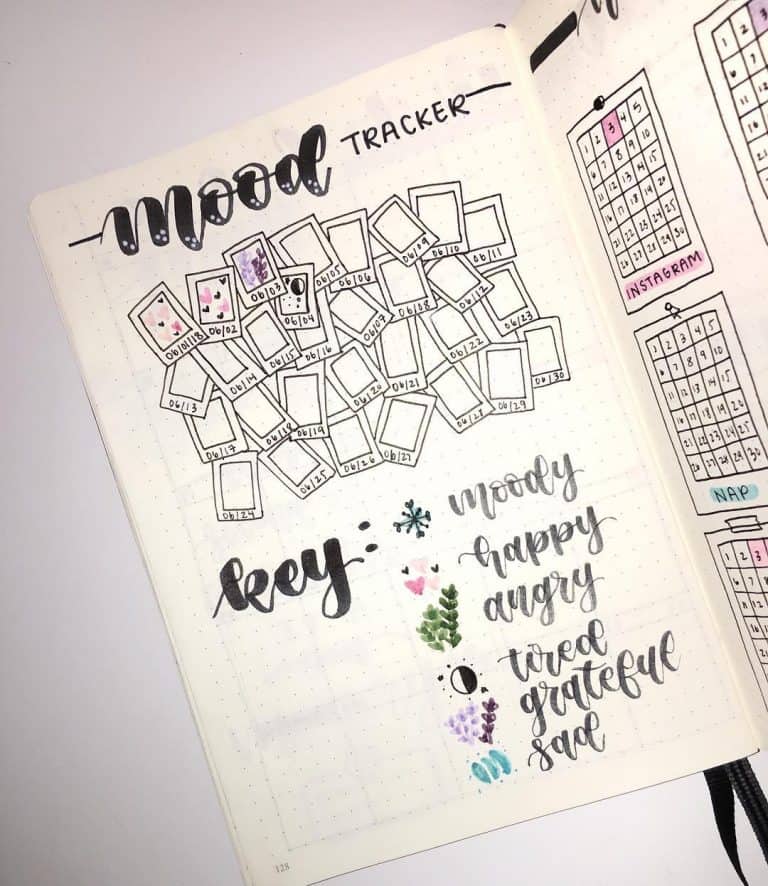 mood TRACKER
06/01/18
06/02
06/03
06/04
06/05
06/06
06/07
06/08
06/09
06/10
06/11
06/12
06/13
06/14
06/15
06/16
06/17
06/18
06/19
06/20
06/21
06/22
06/23
06/24
06/25
06/26
06/27
06/28
06/29
06/30
key:
moody
happy
angry
tired
grateful
sad
128
1 2 3 4 5
6 7 8 9 10
11 12 13 14 15
16 17 18 19 20
21 22 23 24 25
26 27 28 29 30
INSTAGRAM
1 2 3 4 5
6 7 8 9 10
11 12 13 14 15
16 17 18 19 20
21 22 23 24 25
26 27 28 29 30
NAP
1 2 3
6 7
11 12
1 2 3
6 7
11 12